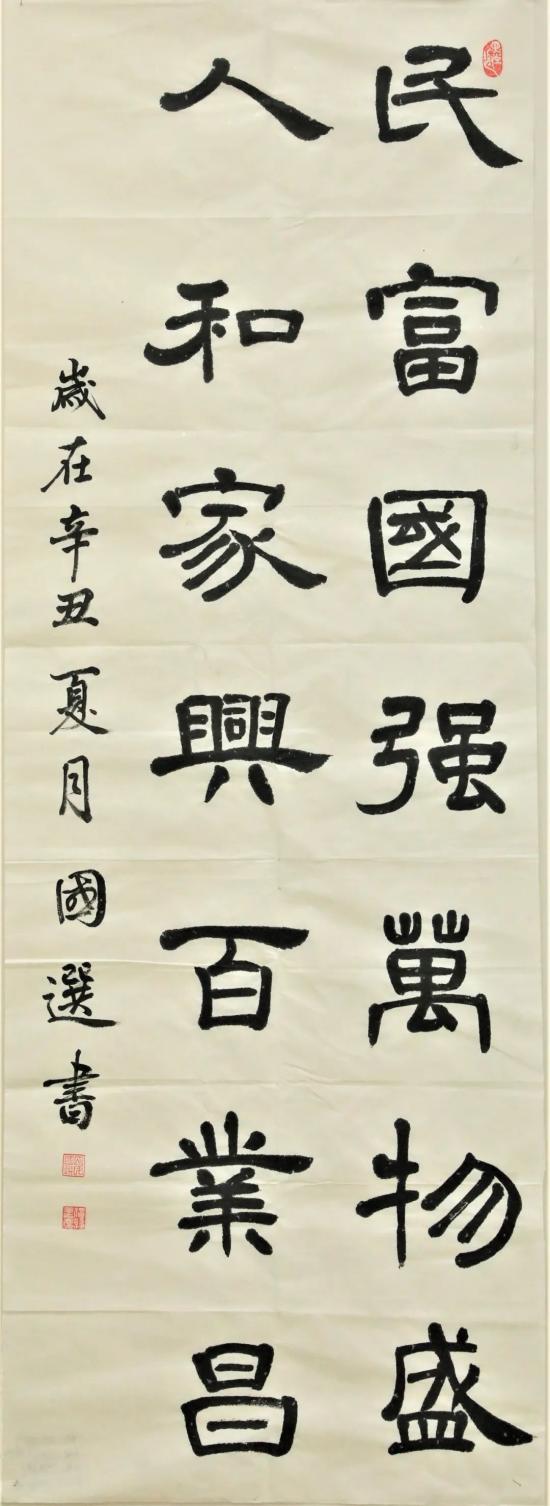 民富國强萬物盛
人和家興百業昌
歲在辛丑夏月國選書